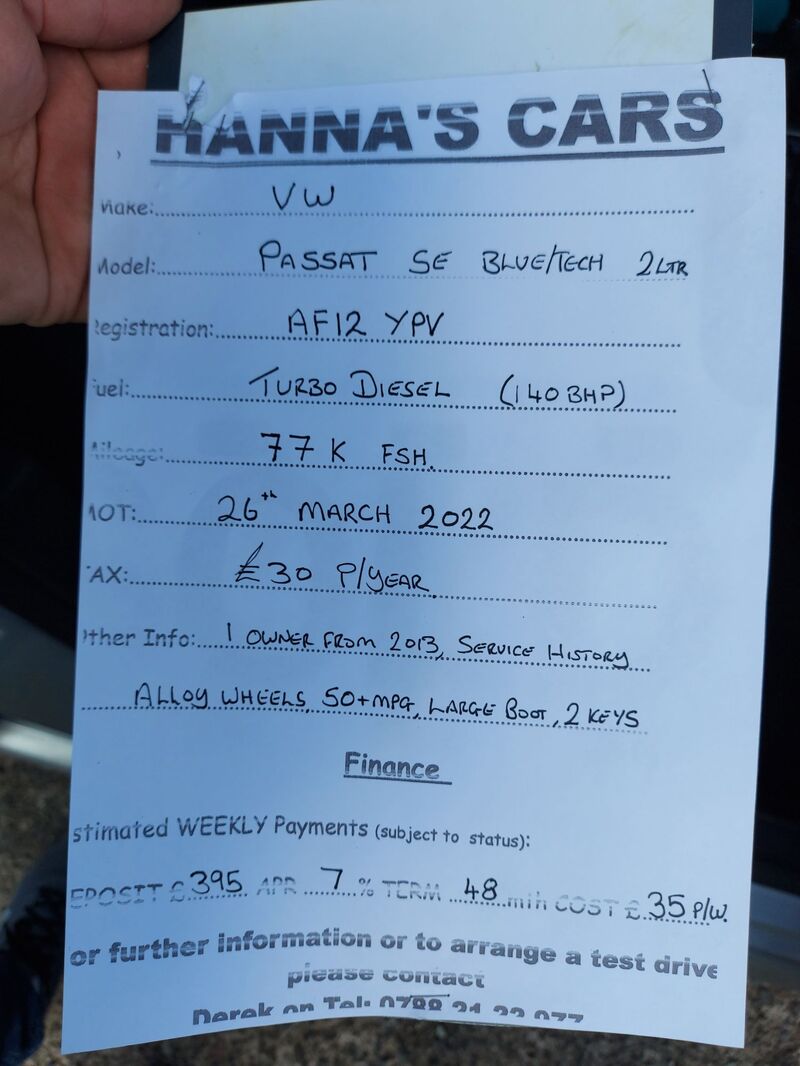 HANNA'S CARS
Make: VW
Model: PASSAT SE BLUE/TECH 2LTR
Registration: AF12 YPV
Fuel: TURBO DIESEL (140 BHP)
Mileage: 77K FSH.
MOT: 26th MARCH 2022
TAX: £30 P/YEAR
Other Info: 1 OWNER FROM 2013, SERVICE HISTORY
ALLOY WHEELS, 50+MPG, LARGE BOOT, 2 KEYS
Finance
stimated WEEKLY Payments (subject to status):
EPOSIT £395 APR 7 % TERM 48 mth COST £ 35 P/W.
or further information or to arrange a test drive
please contact
Derek on Tel: 0788 21 22 077